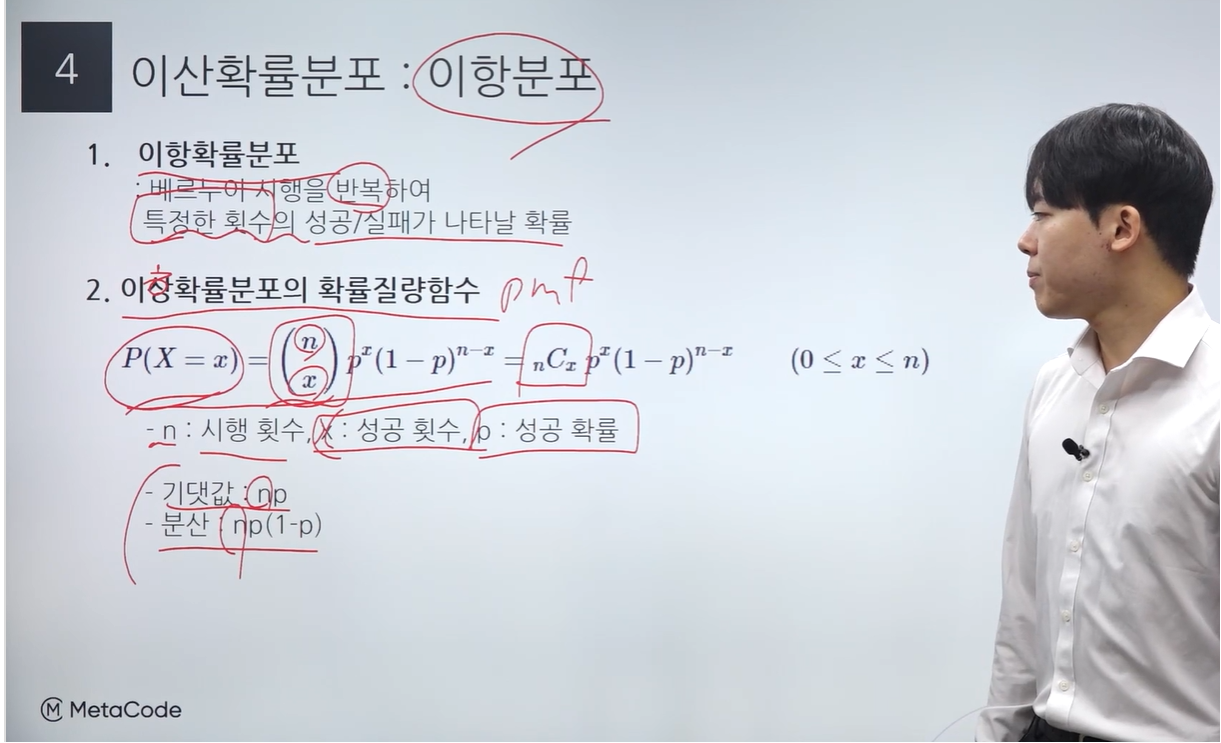 4 이산확률분포 : 이항분포
1. 이항확률분포
: 베르누이 시행을 반복하여
특정한 횟수의 성공/실패가 나타날 확률
2. 이항확률분포의 확률질량함수 pmf
P(X = x) = (n x) pˣ(1 − p)ⁿ⁻ˣ = ₙCₓ pˣ(1 − p)ⁿ⁻ˣ (0 ≤ x ≤ n)
- n : 시행 횟수, x : 성공 횟수, p : 성공 확률
- 기댓값 : np
- 분산 : np(1-p)
MetaCode